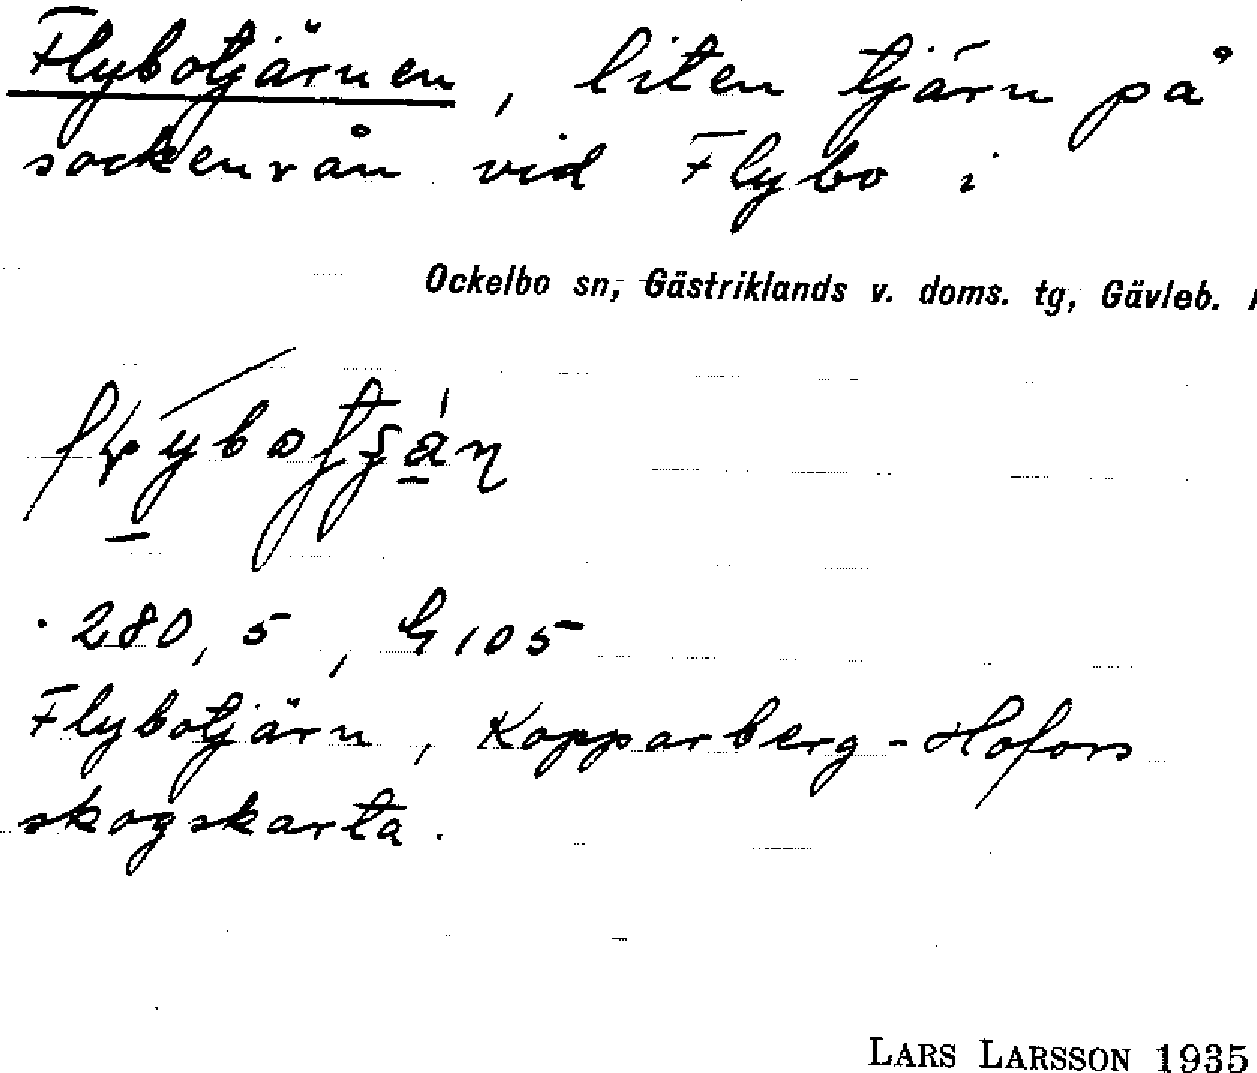 Flybotjärnen, liten tjärn på
sockenrån vid Flybo i
Ockelbo sn, Gästriklands v. doms. tg, Gävleb.
280, 5, G 105
Flybotjärn, Kopparberg-Hofors
skogskarta.
LARS LARSSON 1935